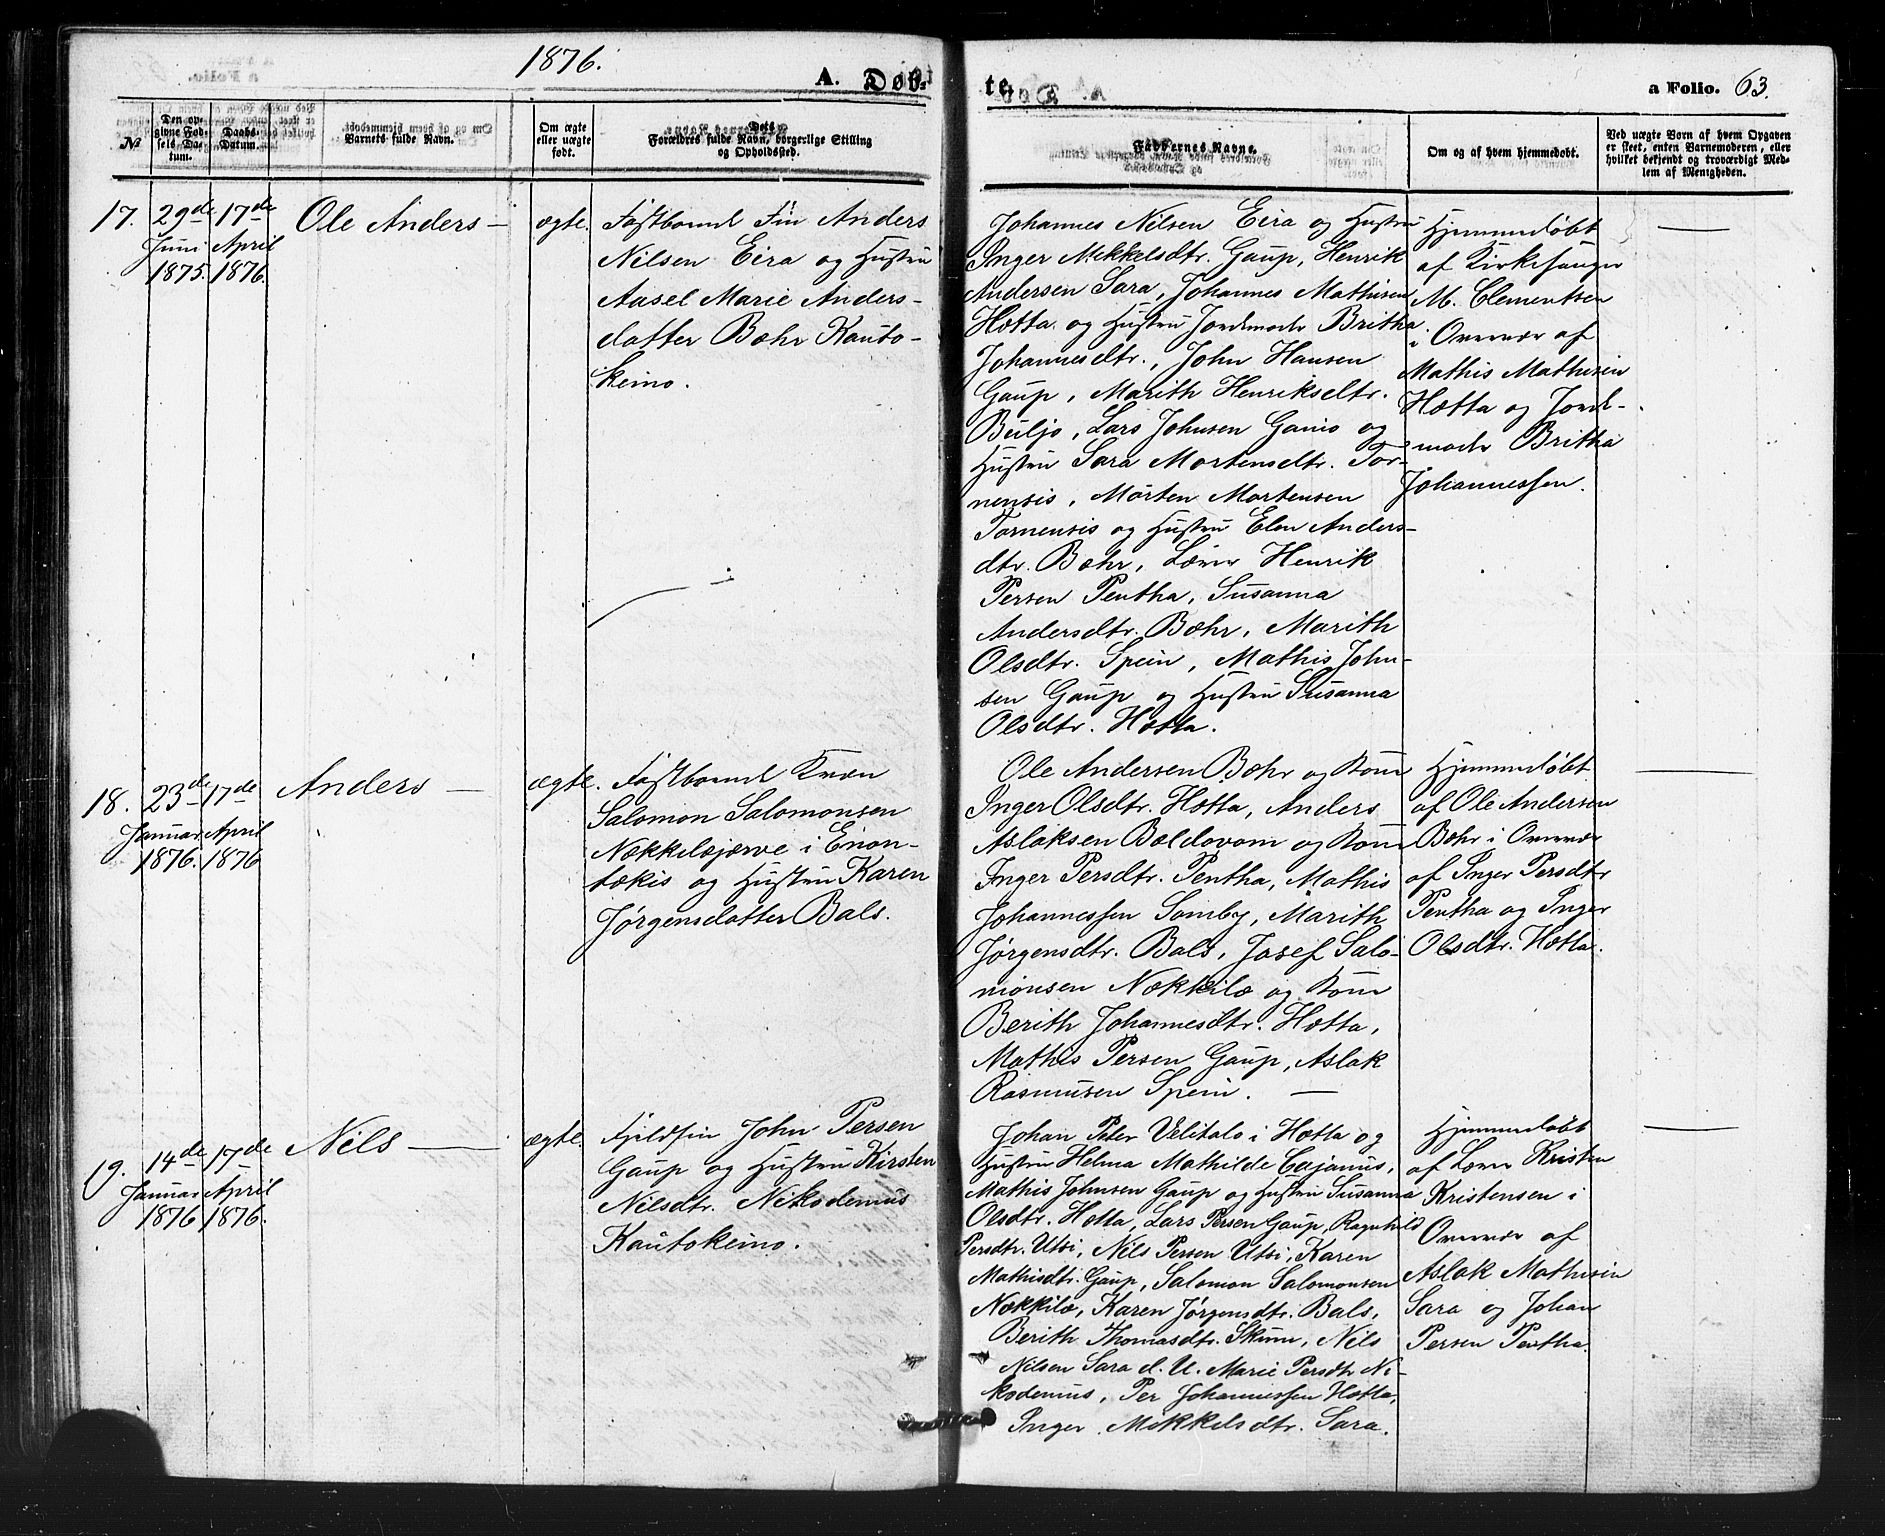 1876.
A. Døb-
te.
a Folio. 63.
№
Den op-
givne Fød-
sels Da-
tum.
Daabs-
Datum.
Barnets fulde Navn.
Om ægte
eller uægte
født.
Dets
Forældres fulde Navn, borgerlige Stilling
og Opholdssted.
Faddernes Navne.
Om og af hvem hjemmedøbt.
Ved uægte Børn af hvem Opgaven
er skeet, enten Barnemoderen, eller
hvilket bekjendt og troværdigt Med-
lem af Menigheden.
17.
29de
Juni
1875.
17de
April
1876.
Ole Anders —
ægte.
Fastboend Fin Anders
Nilsen Eira og Hustru
Aasel Marie Anders-
datter Bæhr Kauto-
keino.
Johannes Nilsen Eira og Hustru
Inger Mekkelsdtr. Gaup, Henrik
Andersen Sara, Johannes Mathisen
Hætta og Hustru Jordemodr Britha
Johannesdtr., John Hansen
Gaup, Marith Henriksdtr.
Buljo, Lars Johnsen Gaino og
Hustru Sara Mortensdtr. Tor-
nensis, Morten Mortensen
Tornensis og Hustru Elen Anders-
dtr. Bæhr, Lærer Henrik
Persen Pentha, Susanna
Andersdtr. Bæhr, Marith
Olsdtr. Spein, Mathis John-
sen Gaup og Hustru Susanna
Olsdtr. Hætta.
Hjemmedøbt
af Kirkesanger
M. Clementsen
i Overvær af
Mathis Mathisen
Hætta og Jord-
modr Britha
Johannessen.
18.
23de
Januar
1876.
17de
April
1876
Anders —
ægte.
Fastboend Kvæn
Salomon Salomonsen
Nækkelæjærve i Enon-
tækis og Hustru Karen
Jørgensdatter Bals.
Ole Andersen Bæhr og Kone
Inger Olsdtr. Hætta, Anders
Aslaksen Bældovom og Kone
Inger Persdtr. Pentha, Mathis
Johannessen Somby, Marith
Jørgensdtr. Bals, Josef Salo-
monsen Nækkilæ og Kone
Berith Johannesdtr. Hætta,
Mathis Persen Gaup, Aslak
Rasmusen Spein. —
Hjemmedøbt
af Ole Andersen
Bæhr i Overvær
af Inger Persdtr
Pentha og Inger
Olsdtr. Hætta.
19.
14de
Januar
1876
17de
April
1876.
Nils —
ægte.
Fjeldfin John Persen
Gaup og Hustru Kirsten
Nilsdtr. Nikodemus
Kautokeino.
Johan Peter Velitalo i Hætta og
Hustru Helma Mathilde Cajanus,
Mathis Johnsen Gaup og Hustru Susanna
Olsdtr. Hætta, Lars Persen Gaup, Ragnhild
Persdtr. Utsi, Nils Persen Utsi, Karen
Mathisdtr. Gaup, Salomon Salomonsen
Nækkilæ, Karen Jørgensdtr. Bals,
Berith Thomasdtr. Skum, Nils
Nilsen Sara d. U. Marie Persdtr Ni-
kodemus, Per Johannessen Hætta,
Inger Mikkelsdtr. Sara.
Hjemmedøbt
af Lærer Kristen
Kristensen i
Overvær af
Aslak Mathisen
Sara og Johan
Persen Pentha.